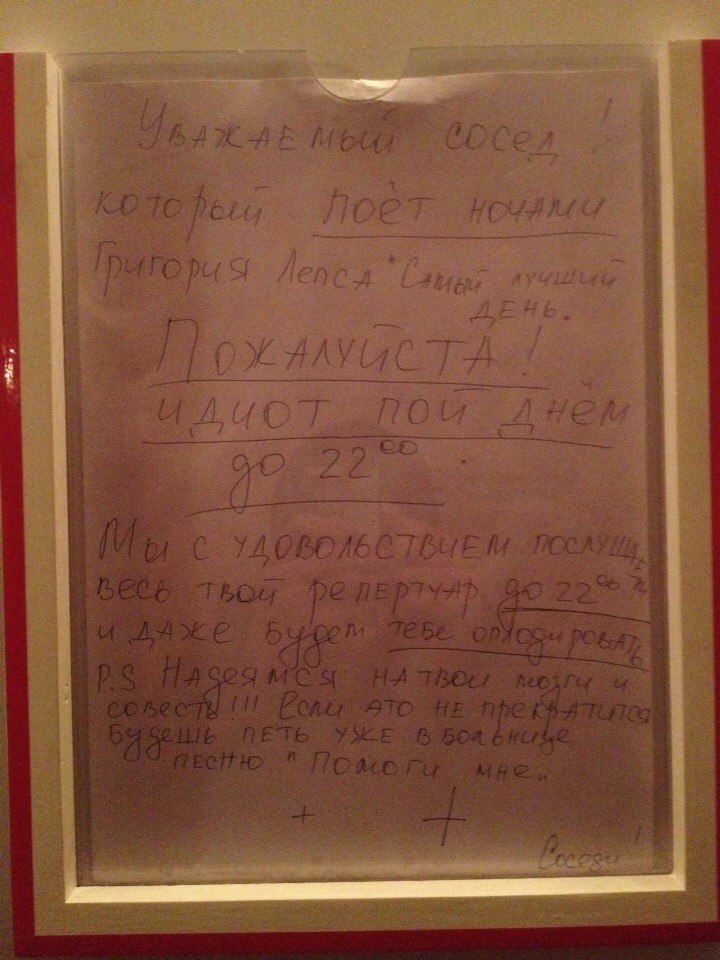 Уважаемый сосед!
который поёт ночами
Григория Лепса "Самый лучший
день.
Пожалуйста!
идиот пой днём
до 22⁰⁰
Мы с удовольствием послушаем
весь твой репертуар до 22⁰⁰
и даже будем тебе оплодировать
P.S Надеямся на твои мозги и
совесть!!! Если это не прекратится
будешь петь уже в больнице
песню "Помоги мне„
+ +
Соседи!